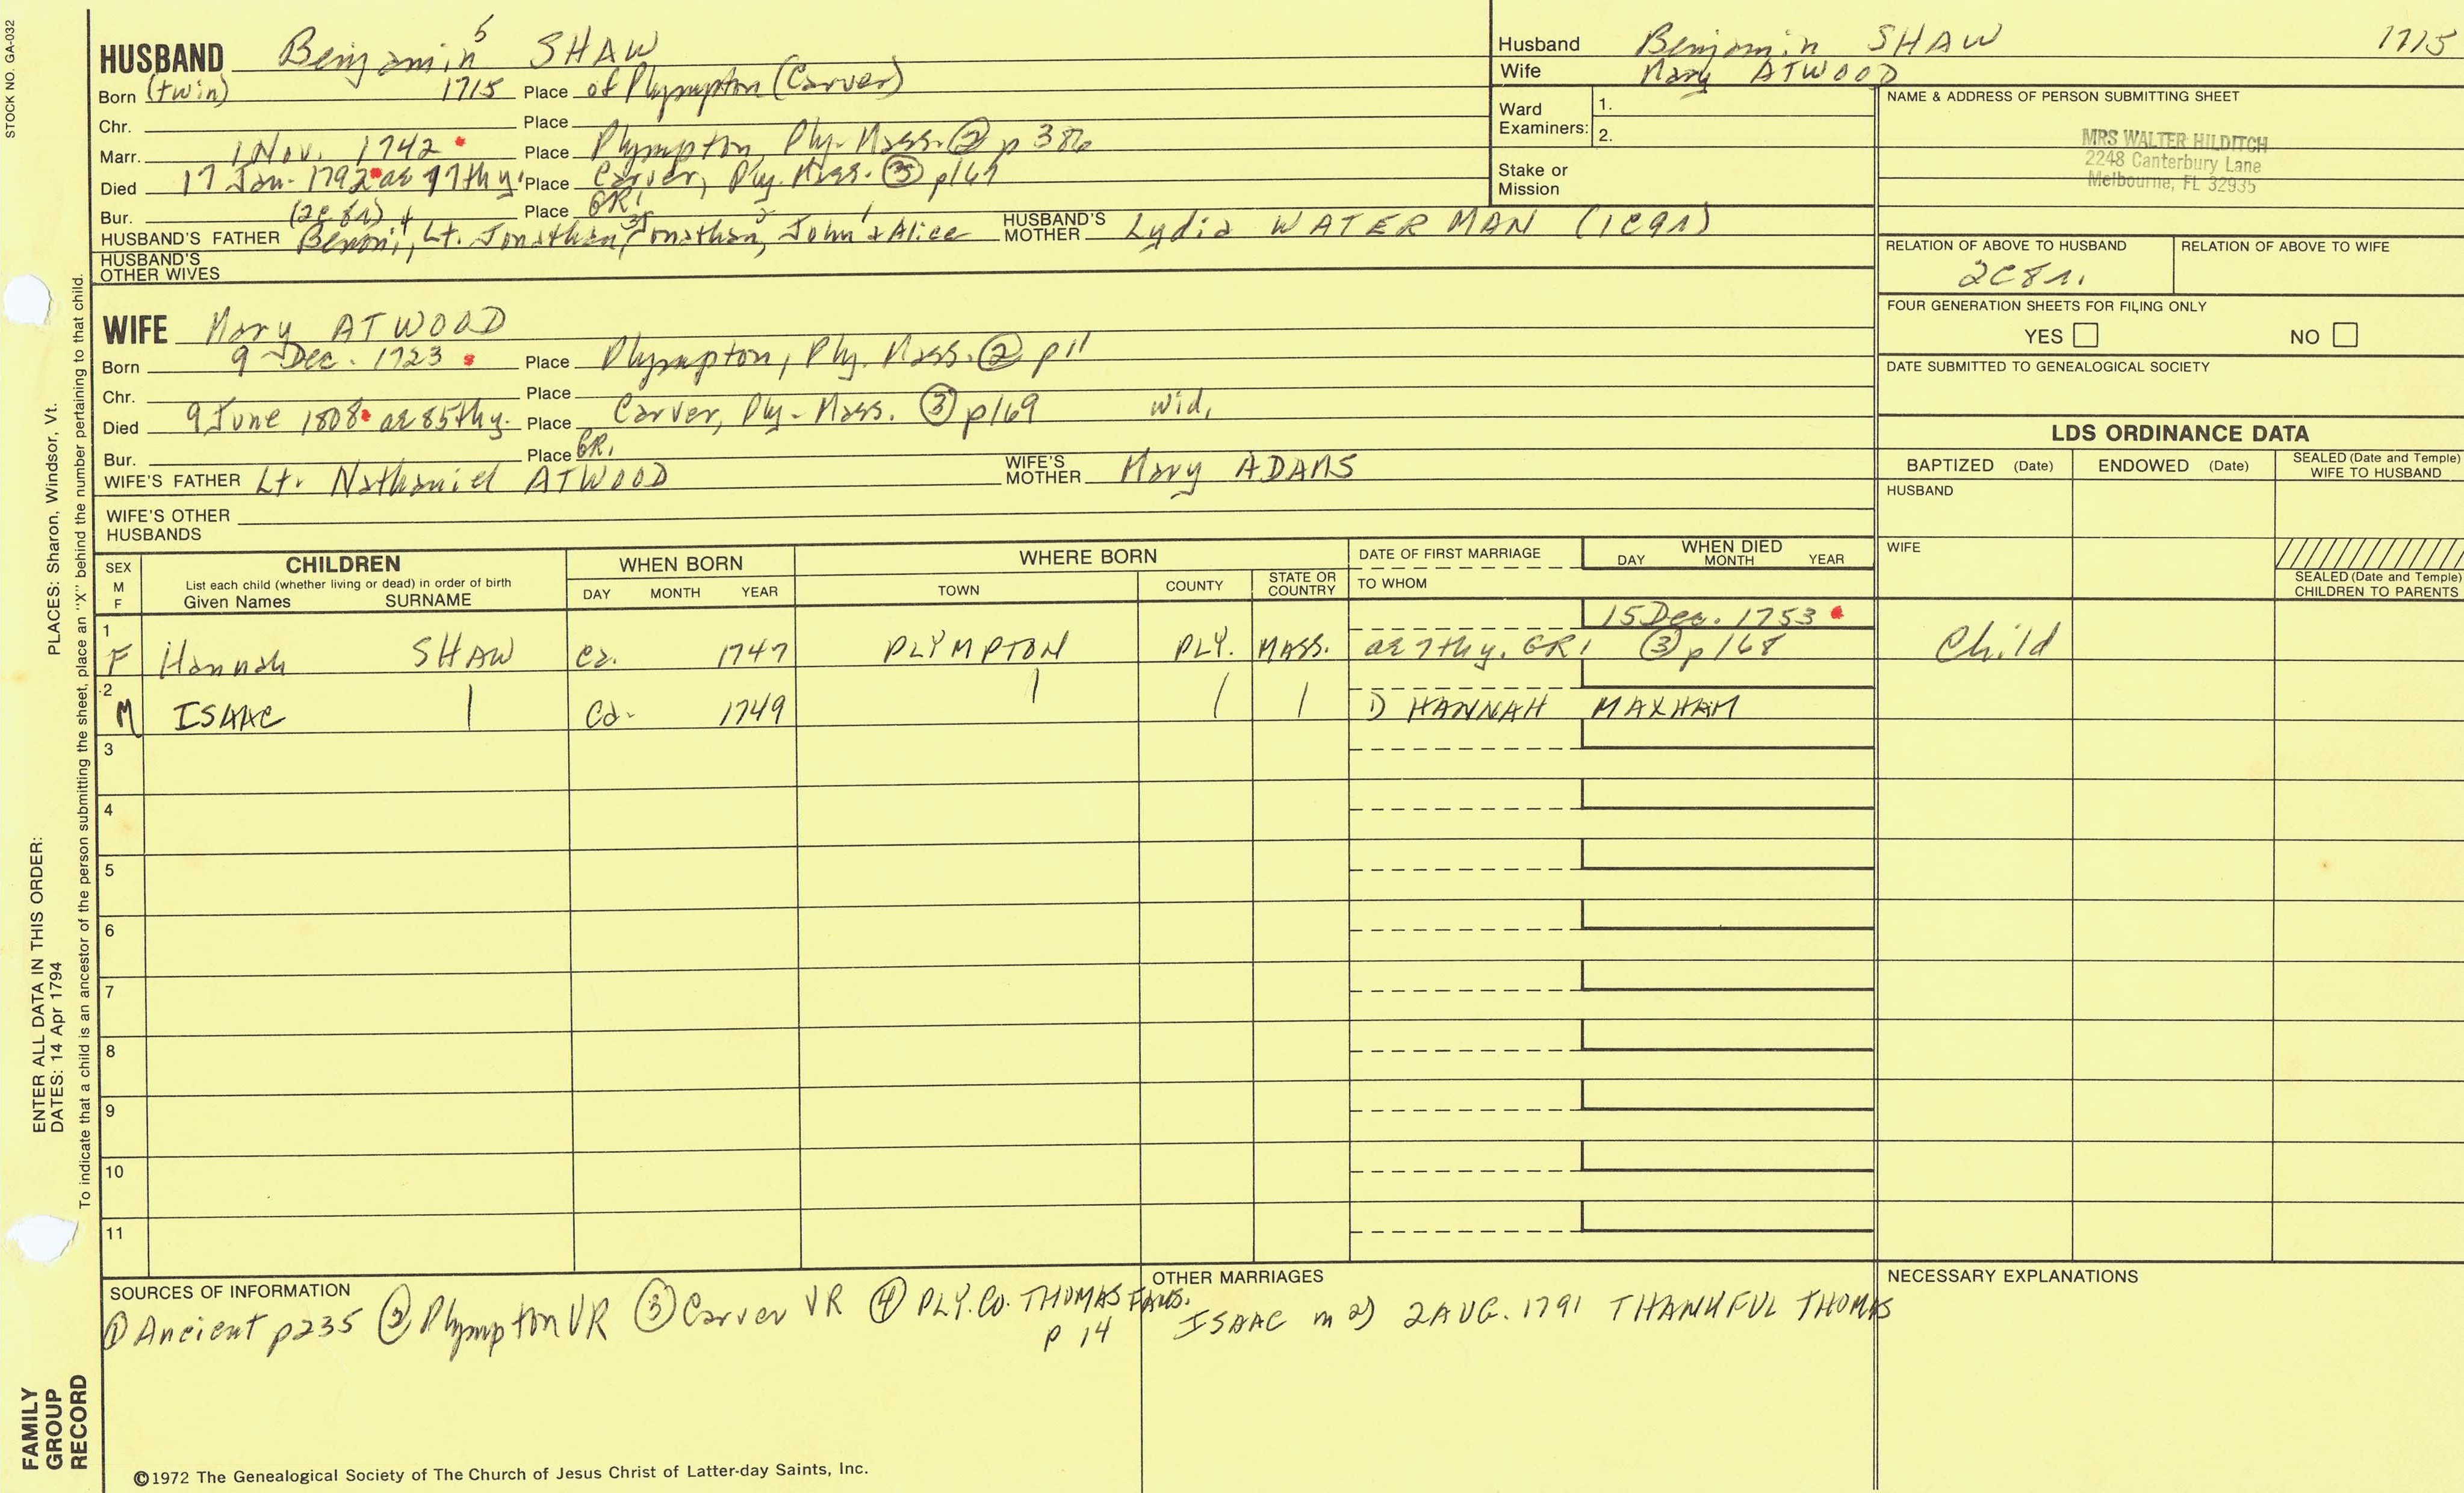 STOCK NO. GA-032
HUSBAND Benjamin 5 SHAW
Born (twin) 1715 Place of Plympton (Carver)
Chr. Place
Marr. 1 Nov. 1742 Place Plympton, Ply. Mass. ② p 386
Died 17 Jan. 1792 ae 77th y. Place Carver, Ply. Mass. ③ p169
Bur. (2c8r) Place GR1
HUSBAND'S FATHER Benoni 4, Lt. Jonathan 3, Jonathan 2, John 1 & Alice HUSBAND'S MOTHER Lydia WATERMAN (1c9r)
HUSBAND'S OTHER WIVES
Husband Benjamin SHAW 1715
Wife Mary ATWOOD
Ward Examiners: 1.
2.
Stake or Mission
NAME & ADDRESS OF PERSON SUBMITTING SHEET
MRS WALTER HILDITCH
2248 Canterbury Lane
Melbourne, FL 32935
RELATION OF ABOVE TO HUSBAND RELATION OF ABOVE TO WIFE
2C8r.
FOUR GENERATION SHEETS FOR FILING ONLY
YES NO
DATE SUBMITTED TO GENEALOGICAL SOCIETY
WIFE Mary ATWOOD
Born 9 Dec. 1723 Place Plympton, Ply. Mass. ② p11
Chr. Place
Died 9 June 1808 ae 85th y. Place Carver, Ply. Mass. ③ p169 wid.
Bur. Place GR1
WIFE'S FATHER Lt. Nathaniel ATWOOD WIFE'S MOTHER Mary ADAMS
WIFE'S OTHER HUSBANDS
LDS ORDINANCE DATA
BAPTIZED (Date) ENDOWED (Date) SEALED (Date and Temple) WIFE TO HUSBAND
HUSBAND
WIFE
SEALED (Date and Temple) CHILDREN TO PARENTS
SEX M F CHILDREN WHEN BORN WHERE BORN DATE OF FIRST MARRIAGE WHEN DIED
List each child (whether living or dead) in order of birth
Given Names SURNAME DAY MONTH YEAR TOWN COUNTY STATE OR COUNTRY TO WHOM DAY MONTH YEAR
15 Dec. 1753
1 F Hannah SHAW ca. 1747 PLYMPTON PLY. MASS. ae 7th y. GR1 ③ p168 Child
2 M ISAAC | ca. 1749 | | | 1) HANNAH MAXHAM
3
4
5
6
7
8
9
10
11
SOURCES OF INFORMATION
① Ancient p235 ② Plympton VR ③ Carver VR ④ PLY. CO. THOMAS FAMS.
p 14
OTHER MARRIAGES
ISAAC m 2) 2 AUG. 1791 THANKFUL THOMAS
NECESSARY EXPLANATIONS
©1972 The Genealogical Society of The Church of Jesus Christ of Latter-day Saints, Inc.
ENTER ALL DATA IN THIS ORDER:
DATES: 14 Apr 1794 PLACES: Sharon, Windsor, Vt.
To indicate that a child is an ancestor of the person submitting the sheet, place an "X" behind the number pertaining to that child.
FAMILY
GROUP
RECORD